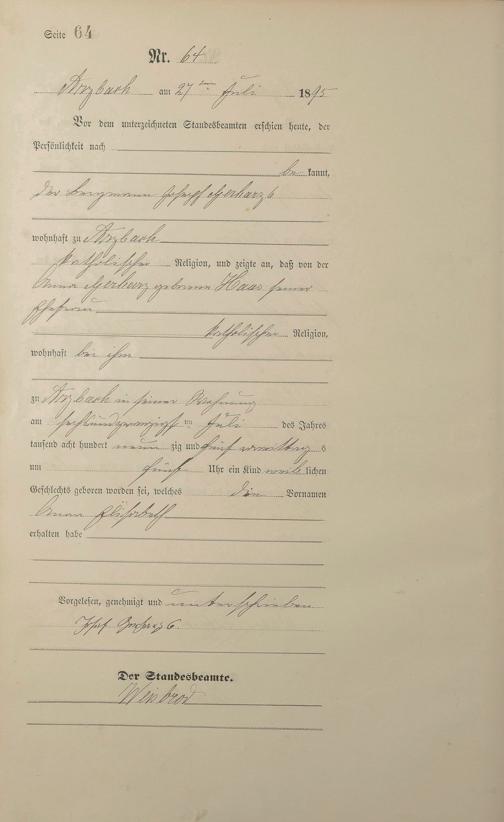 Seite 64
Nr. 64
Arzbach am 27 ten Juli 1895
Vor dem unterzeichneten Standesbeamten erschien heute, der
Persönlichkeit nach
be kannt,
der Bergmann Joseph Gerharz 6
wohnhaft zu Arzbach
katholischer Religion, und zeigte an, daß von der
Anna Gerharz geborene Haas seiner
Ehefrau
katholischer Religion,
wohnhaft bei ihm
zu Arzbach in seiner Wohnung
am sechsundzwanzigsten Juli des Jahres
tausend acht hundert neun zig und fünf vormittags
um fünf Uhr ein Kind weib lichen
Geschlechts geboren worden sei, welches die Vornamen
Anna Elisabeth
erhalten habe
Vorgelesen, genehmigt und unterschrieben
Josef Gerharz 6.
Der Standesbeamte.
Weisbrod